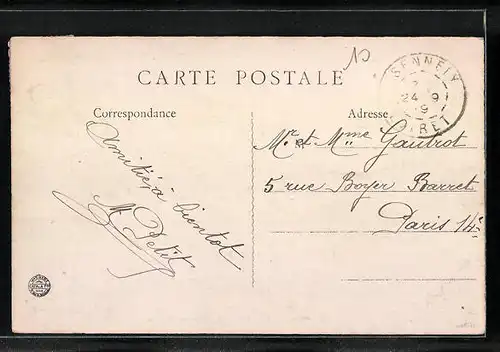 CARTE POSTALE
Correspondance
Amitiés à bientôt
M Petit
Adresse
SENNELY
24 9
LOIRET
Mr. et Mme Gautrot
5 rue Boyer Barret
Paris 14e